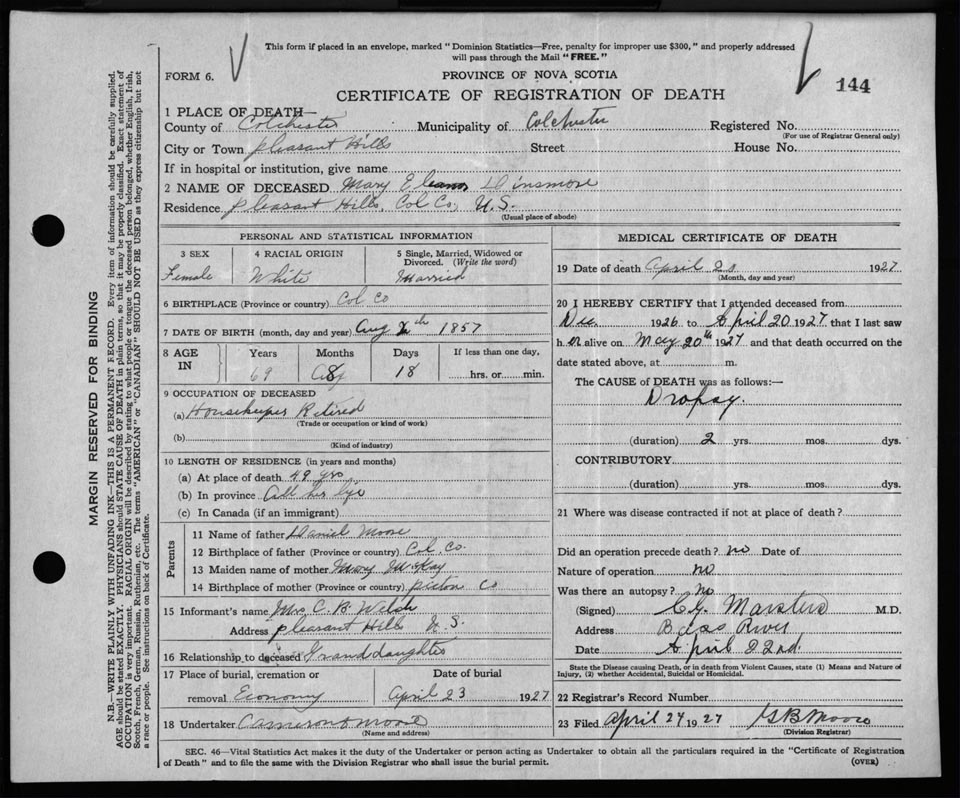 This form if placed in an envelope, marked "Dominion Statistics—Free, penalty for improper use $300," and properly addressed
will pass through the Mail "FREE."
FORM 6.
PROVINCE OF NOVA SCOTIA
CERTIFICATE OF REGISTRATION OF DEATH
144
1 PLACE OF DEATH—
County of Colchester Municipality of Colchester Registered No.
(For use of Registrar General only)
City or Town Pleasant Hills Street House No.
If in hospital or institution, give name
2 NAME OF DECEASED Mary Eleanor Dinsmore
Residence Pleasant Hills, Col Co, N.S.
(Usual place of abode)
PERSONAL AND STATISTICAL INFORMATION
3 SEX 4 RACIAL ORIGIN 5 Single, Married, Widowed or
Divorced. (Write the word)
Female White Married
6 BIRTHPLACE (Province or country) Col Co
7 DATE OF BIRTH (month, day and year) Aug th 1857
8 AGE IN Years Months Days If less than one day,
69 8 18 hrs. or min.
9 OCCUPATION OF DECEASED
(a) Housekeeper Retired
(Trade or occupation or kind of work)
(b)
(Kind of industry)
10 LENGTH OF RESIDENCE (in years and months)
(a) At place of death 49 yrs
(b) In province All her life
(c) In Canada (if an immigrant)
Parents
11 Name of father Daniel Moore
12 Birthplace of father (Province or country) Col. Co.
13 Maiden name of mother Mary McKay
14 Birthplace of mother (Province or country) Pictou Co
15 Informant's name Mrs C. B. Welsh
Address Pleasant Hills N.S.
16 Relationship to deceased Granddaughter
17 Place of burial, cremation or removal Economy
Date of burial
April 23 1927
18 Undertaker Cameron & Moore
(Name and address)
MEDICAL CERTIFICATE OF DEATH
19 Date of death April 20 1927
(Month, day and year)
20 I HEREBY CERTIFY that I attended deceased from
Dec. 1926 to April 20 1927 that I last saw
h er alive on May 20th 1927 and that death occurred on the
date stated above, at m.
The CAUSE of DEATH was as follows:—
Dropsy.
(duration) 2 yrs. mos. dys.
CONTRIBUTORY
(duration) yrs. mos. dys.
21 Where was disease contracted if not at place of death?
Did an operation precede death? no Date of
Nature of operation no
Was there an autopsy? No
(Signed) Marsters M.D.
Address Bass River
Date April 22nd
State the Disease causing Death, or in death from Violent Causes, state (1) Means and Nature of
Injury, (2) whether Accidental, Suicidal or Homicidal.
22 Registrar's Record Number
23 Filed April 27 1927 G B Moore
(Division Registrar)
SEC. 46—Vital Statistics Act makes it the duty of the Undertaker or person acting as Undertaker to obtain all the particulars required in the "Certificate of Registration
of Death" and to file the same with the Division Registrar who shall issue the burial permit.
(OVER)
MARGIN RESERVED FOR BINDING
N.B.—WRITE PLAINLY WITH UNFADING INK—THIS IS A PERMANENT RECORD. Every item of information should be carefully supplied.
AGE should be stated EXACTLY. PHYSICIANS should STATE CAUSE OF DEATH in plain terms, so that it may be properly classified. Exact statement of
OCCUPATION is very important. RACIAL ORIGIN will be described by stating to what people or tongue the deceased person belonged, whether English, Irish,
Scotch, French, German, Russian, Ruthenian, etc. The terms "AMERICAN" or "CANADIAN" SHOULD NOT BE USED as they express citizenship but not
a race or people. See instructions on back of Certificate.